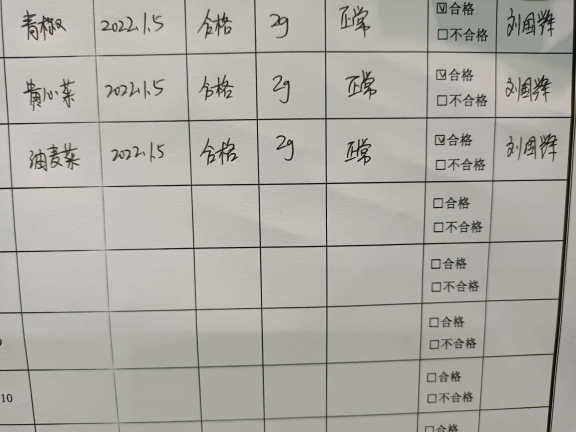 青椒 2022.1.5 合格 2g 正常 ☑合格
☐不合格 刘国辉
黄心菜 2022.1.5 合格 2g 正常 ☑合格
☐不合格 刘国辉
油麦菜 2022.1.5 合格 2g 正常 ☑合格
☐不合格 刘国辉
☐合格
☐不合格
☐合格
☐不合格
☐合格
☐不合格
10 ☐合格
☐不合格
☐合格